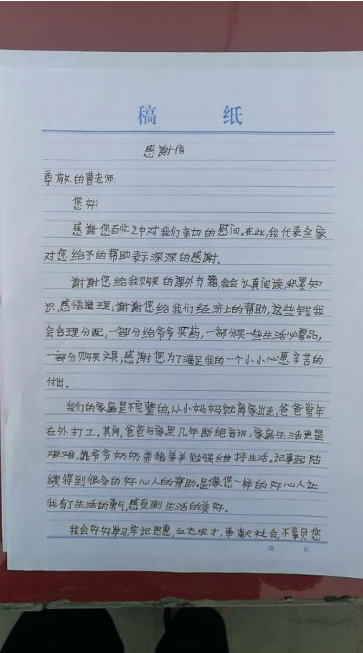 稿 纸
感谢信
尊敬的曹老师:
您好!
感谢您百忙之中对我们亲切的慰问。在此,我代表全家
对您给予的帮助表示深深的感谢。
谢谢您给我购买的课外书籍,我会认真阅读,积累知
识,感悟道理;谢谢您给我们经济上的帮助,这些钱我
会合理分配,一部分给爷爷买药,一部分买一些生活必需品,
一部分购买文具,感谢您为了满足我的一个小小心愿辛苦的
付出。
我们的家庭是不完整的,从小妈妈就离家出走,爸爸常年
在外打工。其间,爸爸与家里几年断绝音讯,家庭生活更是
艰难,靠爷爷奶奶养猪养羊勉强维持生活。记事起陆
续得到很多的好心人的帮助。是像您一样的好心人让
我有了生活的勇气,感受到生活的美好。
我会好好学习,牢记恩惠,立志成才,奉献社会,不辜负您